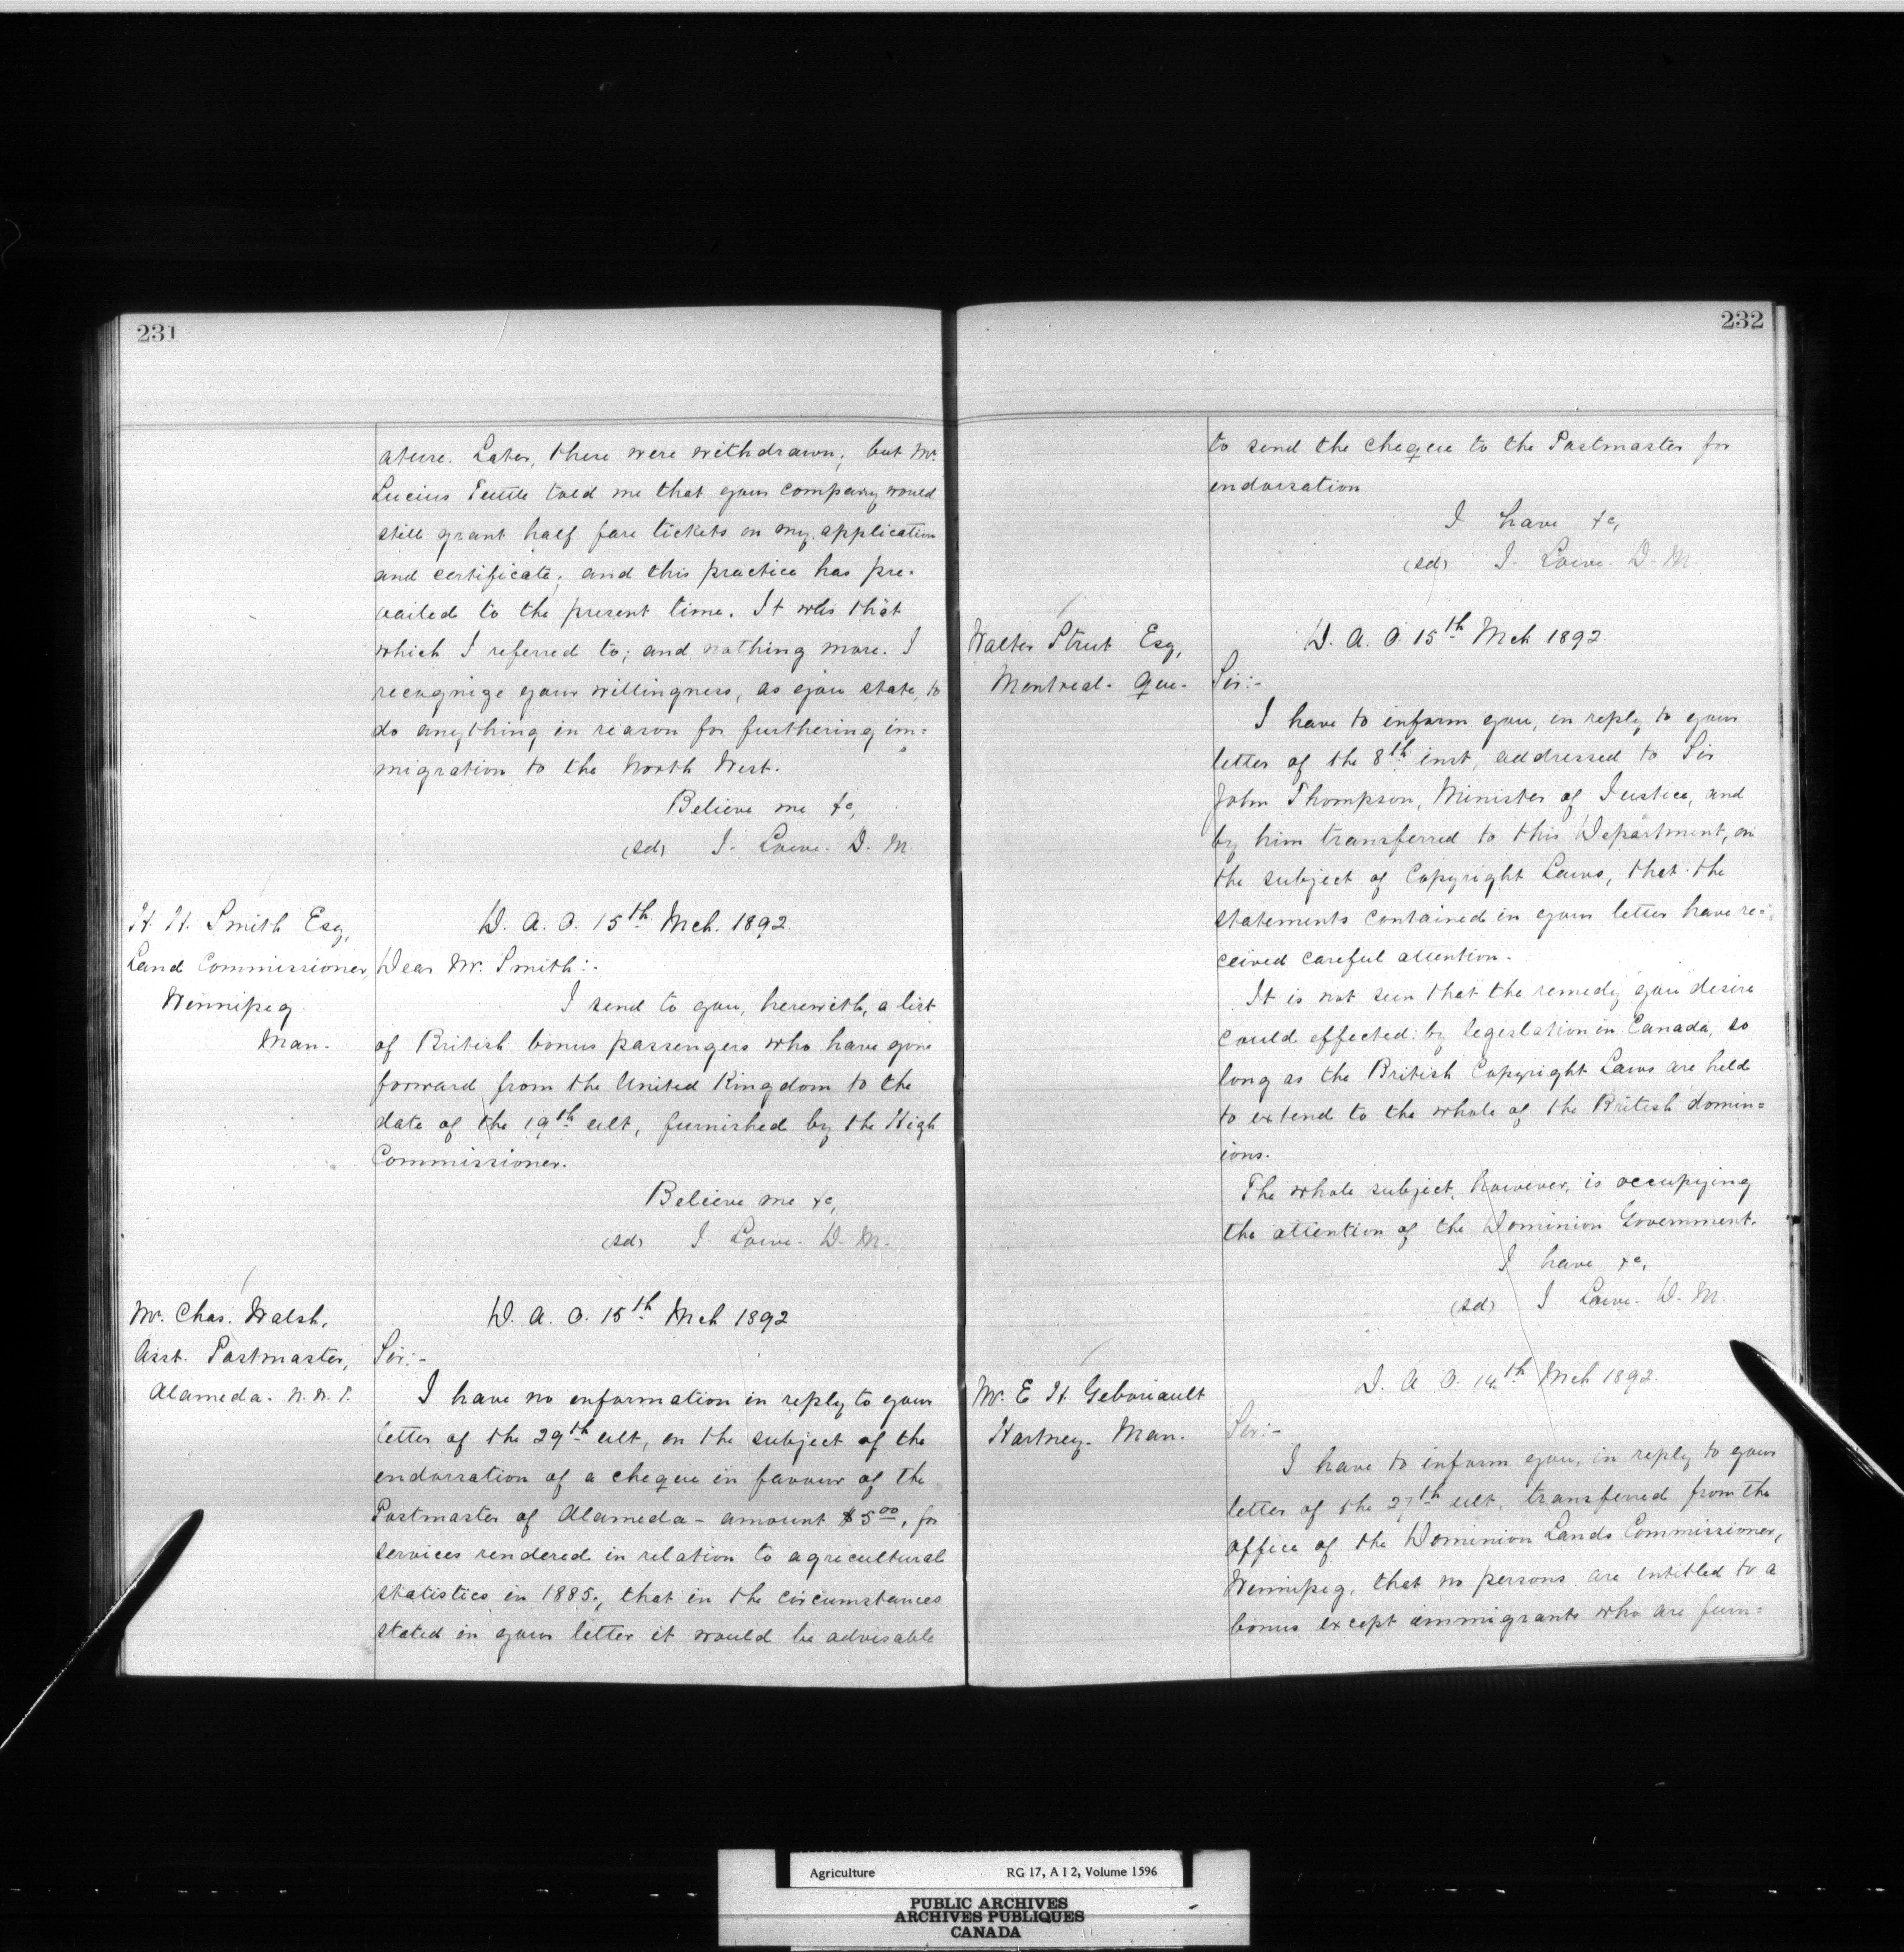 231
ature. Later, these were withdrawn; but Mr.
Lucius Tuttle told me that your company would
still grant half fare tickets on my application
and certificate; and this practice has pre-
vailed to the present time. It was that
which I referred to; and nothing more. I
recognize your willingness, as you state, to
do anything in reason for furthering im=
migration to the North West.
Believe me &c,
(sd) J. Lowe. D. M.
H. H. Smith Esq,
Land Commissioner,
Winnipeg
Man.
D. A. O. 15th Mch. 1892.
Dear Mr. Smith:-
I send to you, herewith, a list
of British bonus passengers who have gone
forward from the United Kingdom to the
date of the 19th ult, furnished by the High
Commissioner.
Believe me &c,
(sd) J. Lowe. D. M.
Mr. Chas. Walsh,
Asst. Postmaster,
Alameda. N. W. T.
D. A. O. 15th Mch 1892
Sir:-
I have no information in reply to your
letter of the 29th ult, on the subject of the
endorsation of a cheque in favour of the
Postmaster of Alameda - amount $5.00, for
services rendered in relation to agricultural
statistics in 1885, that in the circumstances
stated in your letter it would be advisable
232
to send the cheque to the Postmaster for
endorsation
I have &c,
(sd) J. Lowe. D. M.
Walter Street Esq,
Montreal. Que.
D. A. O. 15th Mch 1892.
Sir:-
I have to inform you, in reply to your
letter of the 8th inst, addressed to Sir
John Thompson, Minister of Justice, and
by him transferred to this Department, on
the subject of Copyright Laws, that the
statements contained in your letter have re=
ceived careful attention.
It is not seen that the remedy you desire
could effected by legislation in Canada, so
long as the British Copyright Laws are held
to extend to the whole of the British domin=
ions.
The whole subject, however, is occupying
the attention of the Dominion Government.
I have &c,
(sd) J. Lowe. D. M.
Mr. E. H.
Hartney. Man.
D. A. O. 14th Mch 1892.
Sir:-
I have to inform you, in reply to your
letter of the 27th ult. transferred from the
office of the Dominion Lands Commissioner,
Winnipeg, that no persons are intitled to a
bonus except immigrants who are furn=
Agriculture RG 17, A I 2, Volume 1596
PUBLIC ARCHIVES
ARCHIVES PUBLIQUES
CANADA